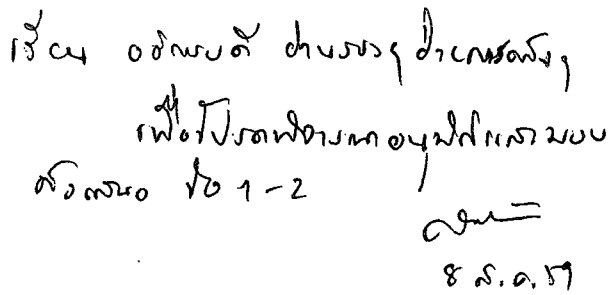 เรียน อธิการบดี ผ่านรองฯ ฝ่ายการคลังฯ
เพื่อโปรดพิจารณาอนุมัติและมอบ
ดังเสนอ ข้อ 1-2
8 ส.ค. 59